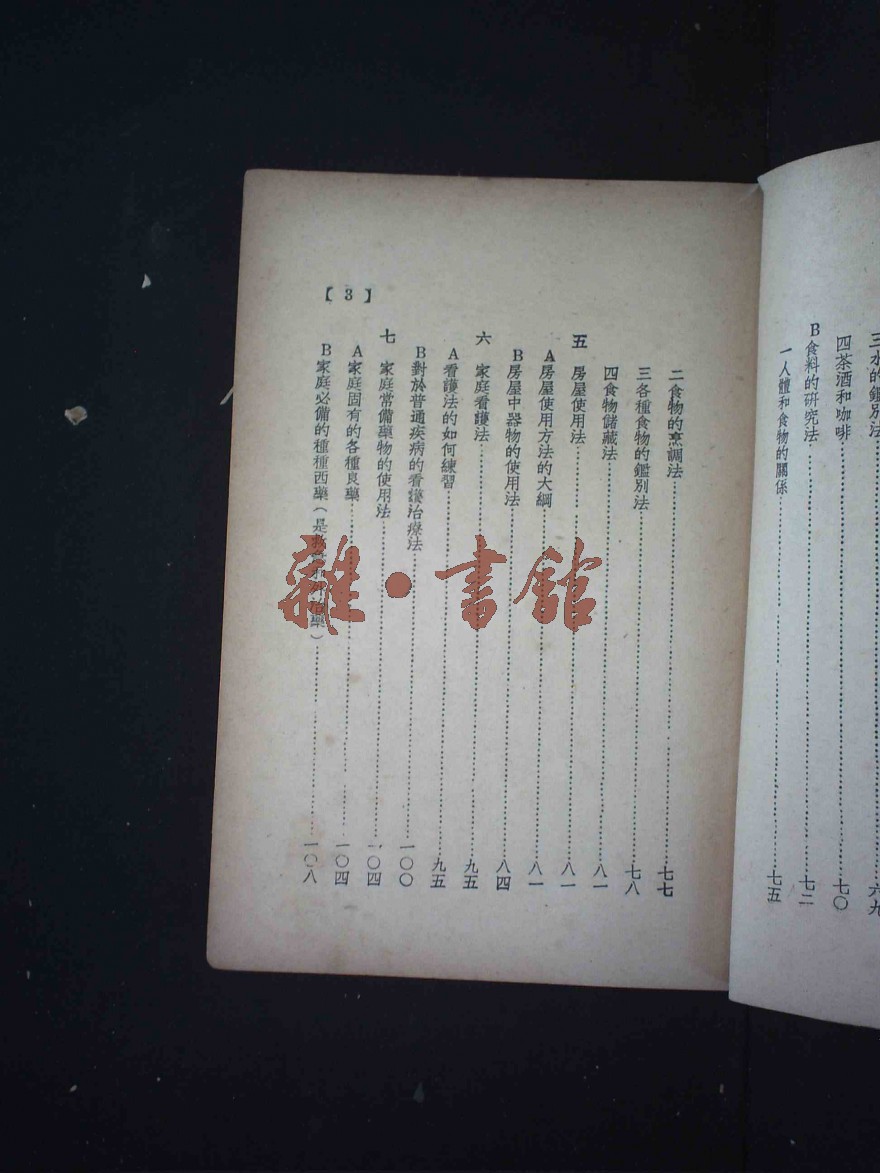 三水的鑑別法……六九
四茶酒和咖啡……七〇
B食料的研究法……七二
一人體和食物的關係……七五
二食物的烹調法……七七
三各種食物的鑑別法……七八
四食物儲藏法……八一
五 房屋使用法……八一
A房屋使用方法的大綱……八一
B房屋中器物的使用法……八四
六 家庭看護法……九五
A看護法的如何練習……九五
B對於普通疾病的看護治療法……一〇〇
七 家庭常備藥物的使用法……一〇四
A家庭固有的各種良藥……一〇四
B家庭必備的種種西藥(是救急和 治藥)……一〇八
【3】
雜·書館